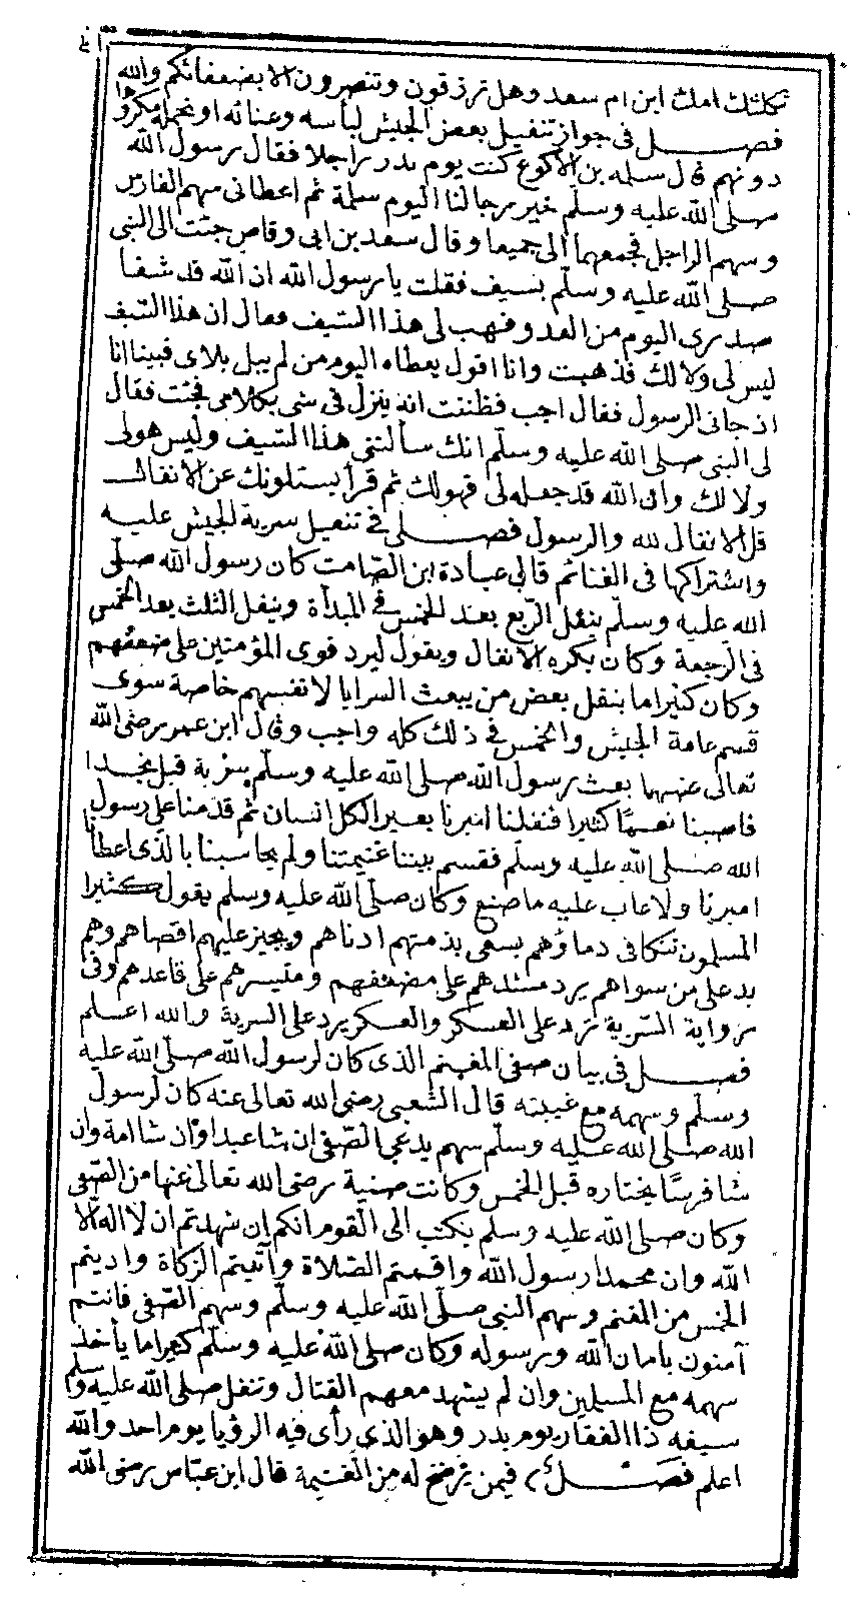 ثكلتك امك ابن ام سعد وهل ترزقون وتنصرون الا بضعفائكم والله
فصل فى جواز تنفيل بعض الجيش لبأسه وعنائه او تحمله مكروها
دونهم قال سلمه بن الاكوع كنت يوم بدر راجلا فقال رسول الله
صلى الله عليه وسلم خير رجالنا اليوم سلمة ثم اعطانى سهم الفارس
وسهم الراجل فجمعهما الى جميعا وقال سعد بن ابى وقاص جئت الى النبى
صلى الله عليه وسلم بسيف فقلت يا رسول الله ان الله قد شفا
صدرى اليوم من العدو فهب لى هذا السيف فقال ان هذا السيف
ليس لى ولا لك فذهبت وانا اقول يعطاه اليوم من لم يبل بلاى فبينا انا
اذ جانى الرسول فقال اجب فظننت انه ينزل فى شى بكلامى فجئت فقال
لى النبى صلى الله عليه وسلم انك سألتنى هذا السيف وليس هو لى
ولا لك وان الله قد جعله لى فهو لك ثم قرأ يسئلونك عن الانفال
قل الانفال لله والرسول فصل فى تنفيل سرية الجيش عليه
واشتراكها فى الغنائم قال عبادة ابن الصامت كان رسول الله صلى
الله عليه وسلم ينفل الربع بعد الخمس فى البدأة وينفل الثلث بعد الخمس
فى الرجعة وكان يكره الانفال ويقول ليرد قوى المؤمنين على ضعفهم
وكان كثيرا ما ينفل بعض من يبعث السرايا لانفسهم خاصة سوى
قسم عامة الجيش والخمس فى ذلك كله واجب وقال ابن عمر رضى الله
تعالى عنهما بعث رسول الله صلى الله عليه وسلم سرية قبل نجدا
فاصبنا نعمًا كثيرا فنفلنا اميرنا بعيرا لكل انسان ثم قدمنا على رسول
الله صلى الله عليه وسلم فقسم بيننا غنيمتنا ولم يحاسبنا بالذى اعطانا
اميرنا ولا عاب عليه ما صنع وكان صلى الله عليه وسلم يقول كثيرا
المسلمون تتكافى دماؤهم يسعى بذمتهم ادناهم ويجيز عليهم اقصاهم وهم
يد على من سواهم يرد مشدهم على مضعفهم ومتيسرهم على قاعدهم وفى
رواية السرية ترد على العسكر والعسكر يرد على السرية والله اعلم
فصل فى بيان صفى المغنم الذى كان لرسول الله صلى الله عليه
وسلم وسهمه مع غيبته قال الشعبى رضى الله تعالى عنه كان لرسول
الله صلى الله عليه وسلم سهم يدعى الصفى ان شا عبدا وان شا امة وان
شا فرسًا يختاره قبل الخمس وكانت صفية رضى الله تعالى عنها من الصفى
وكان صلى الله عليه وسلم يكتب الى القوم انكم ان شهدتم ان لا اله الا
الله وان محمدا رسول الله واقمتم الصلاة وآتيتم الزكاة واديتم
الخمس من المغنم وسهم النبى صلى الله عليه وسلم وسهم الصفى فانتم
آمنون بامان الله ورسوله وكان صلى الله عليه وسلم كثيرا ما يأخذ
سهمه مع المسلمين وان لم يشهد معهم القتال وتنفل صلى الله عليه وسلم
سيفه ذا الفقار يوم بدر وهو الذى رأى فيه الرؤيا يوم احد والله
اعلم فصل فيمن يرضخ له من الغنيمة قال ابن عباس رضى الله